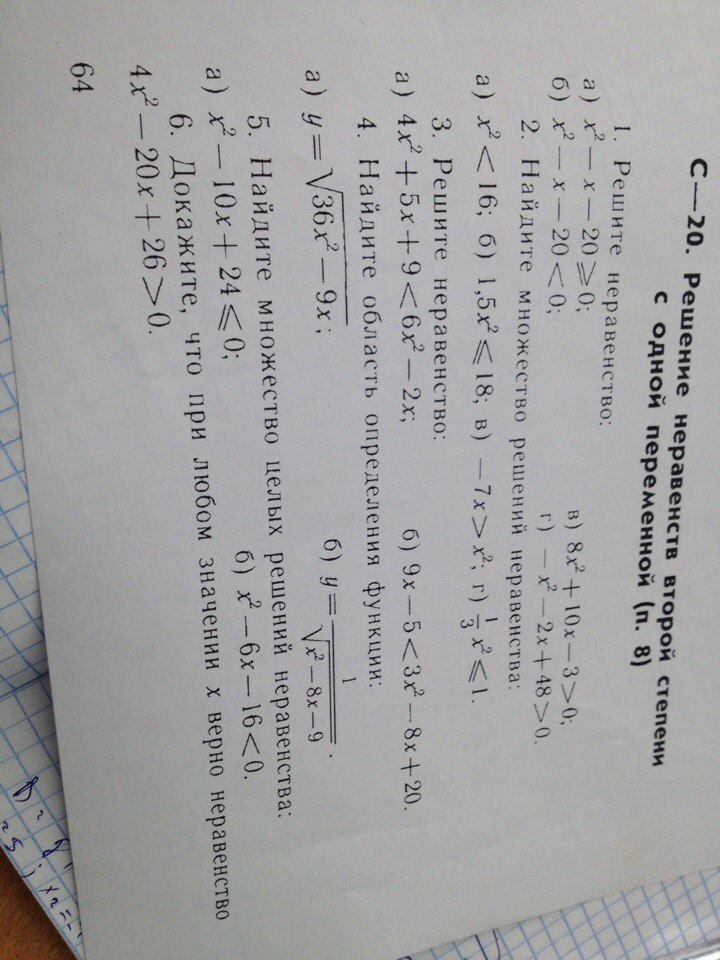 С—20. Решение неравенств второй степени
с одной переменной (п. 8)
1. Решите неравенство:
а) x² − x − 20 ⩾ 0; в) 8x² + 10x − 3 > 0;
б) x² − x − 20 < 0; г) −x² − 2x + 48 > 0.
2. Найдите множество решений неравенства:
а) x² < 16; б) 1,5x² ⩽ 18; в) −7x > x²; г) 1/3 x² ⩽ 1.
3. Решите неравенство:
а) 4x² + 5x + 9 < 6x² − 2x; б) 9x − 5 < 3x² − 8x + 20.
4. Найдите область определения функции:
а) y = √(36x² − 9x); б) y = 1/√(x² − 8x − 9).
5. Найдите множество целых решений неравенства:
а) x² − 10x + 24 ⩽ 0; б) x² − 6x − 16 < 0.
6. Докажите, что при любом значении x верно неравенство
4x² − 20x + 26 > 0.
64